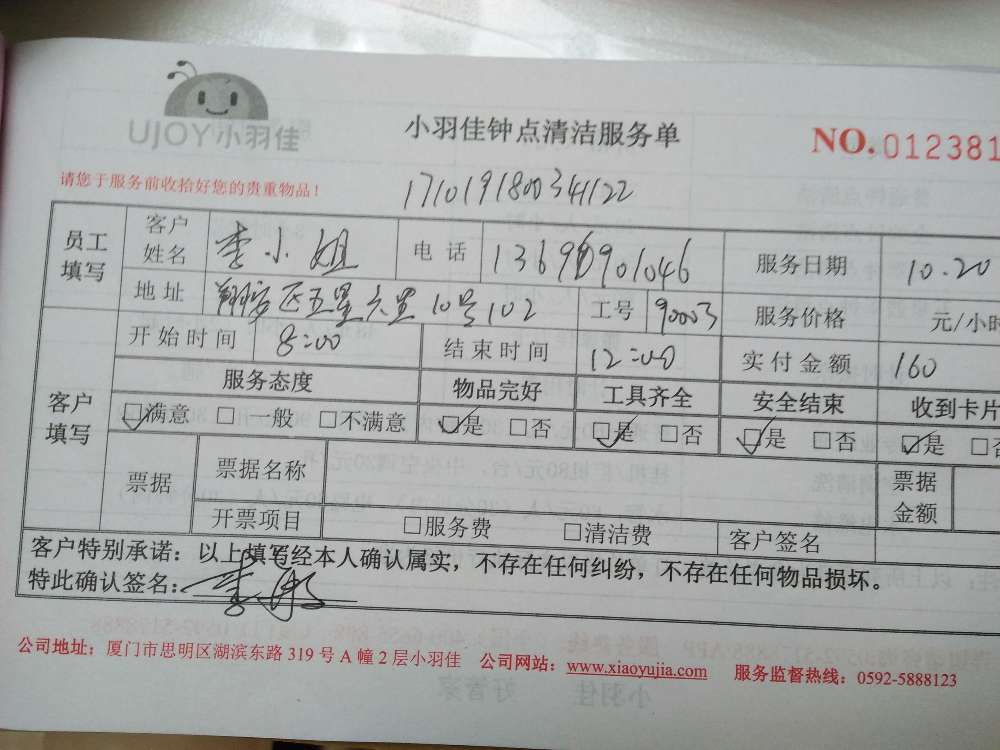 UJOY小羽佳
小羽佳钟点清洁服务单
NO.012381
请您于服务前收拾好您的贵重物品！
171019180034 1122
员工填写 客户姓名 李小姐 电话 服务日期 10.20
地址 五星六里10号102 工号 90003 服务价格 元/小时
客户填写 开始时间 8:00 结束时间 12:00 实付金额 160
服务态度 物品完好 工具齐全 安全结束 收到卡片
☑满意 □一般 □不满意 ☑是 □否 ☑是 □否 ☑是 □否 ☑是 □否
票据 票据名称 票据金额
开票项目 □服务费 □清洁费 客户签名
客户特别承诺：以上填写经本人确认属实，不存在任何纠纷，不存在任何物品损坏。
特此确认签名：李
公司地址：厦门市思明区湖滨东路 319 号 A 幢 2 层小羽佳 公司网站：www.xiaoyujia.com 服务监督热线：0592-5888123